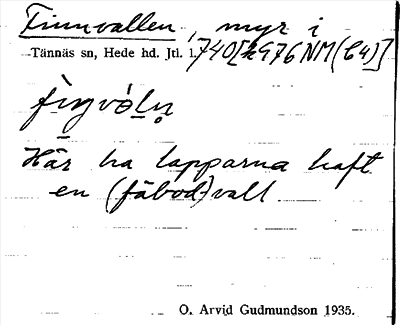 Finnvallen, myr i
Tännäs sn, Hede hd. Jtl. l. 740[2976 NM (C4)]
Här ha lapparna haft
en (fäbod)vall
O. Arvid Gudmundson 1935.